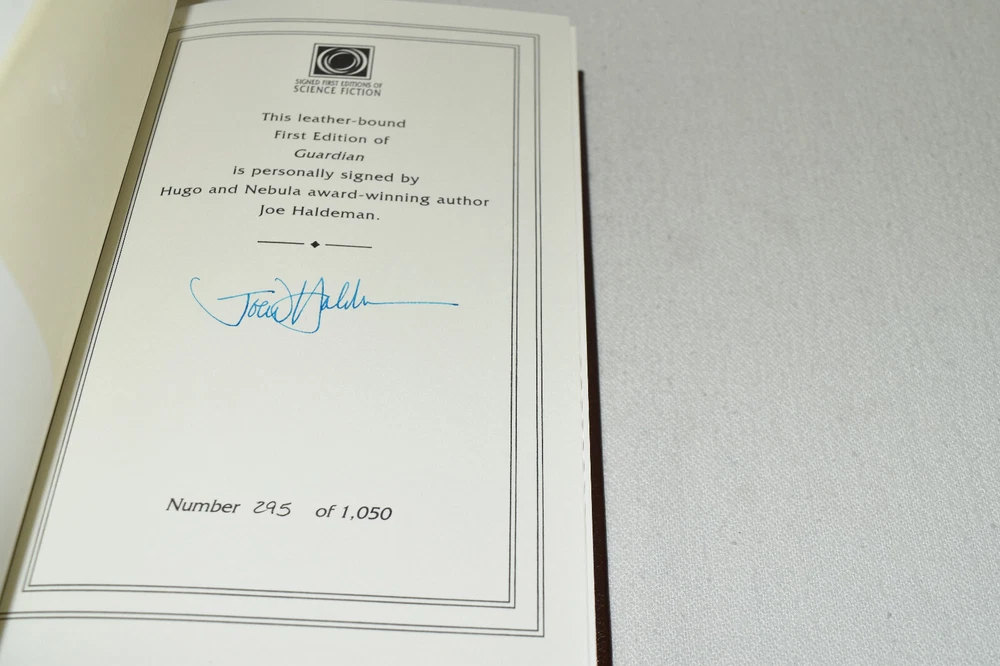 SIGNED FIRST EDITIONS OF
SCIENCE FICTION
This leather-bound
First Edition of
Guardian
is personally signed by
Hugo and Nebula award-winning author
Joe Haldeman.
Joe W Haldm
Number 295 of 1,050